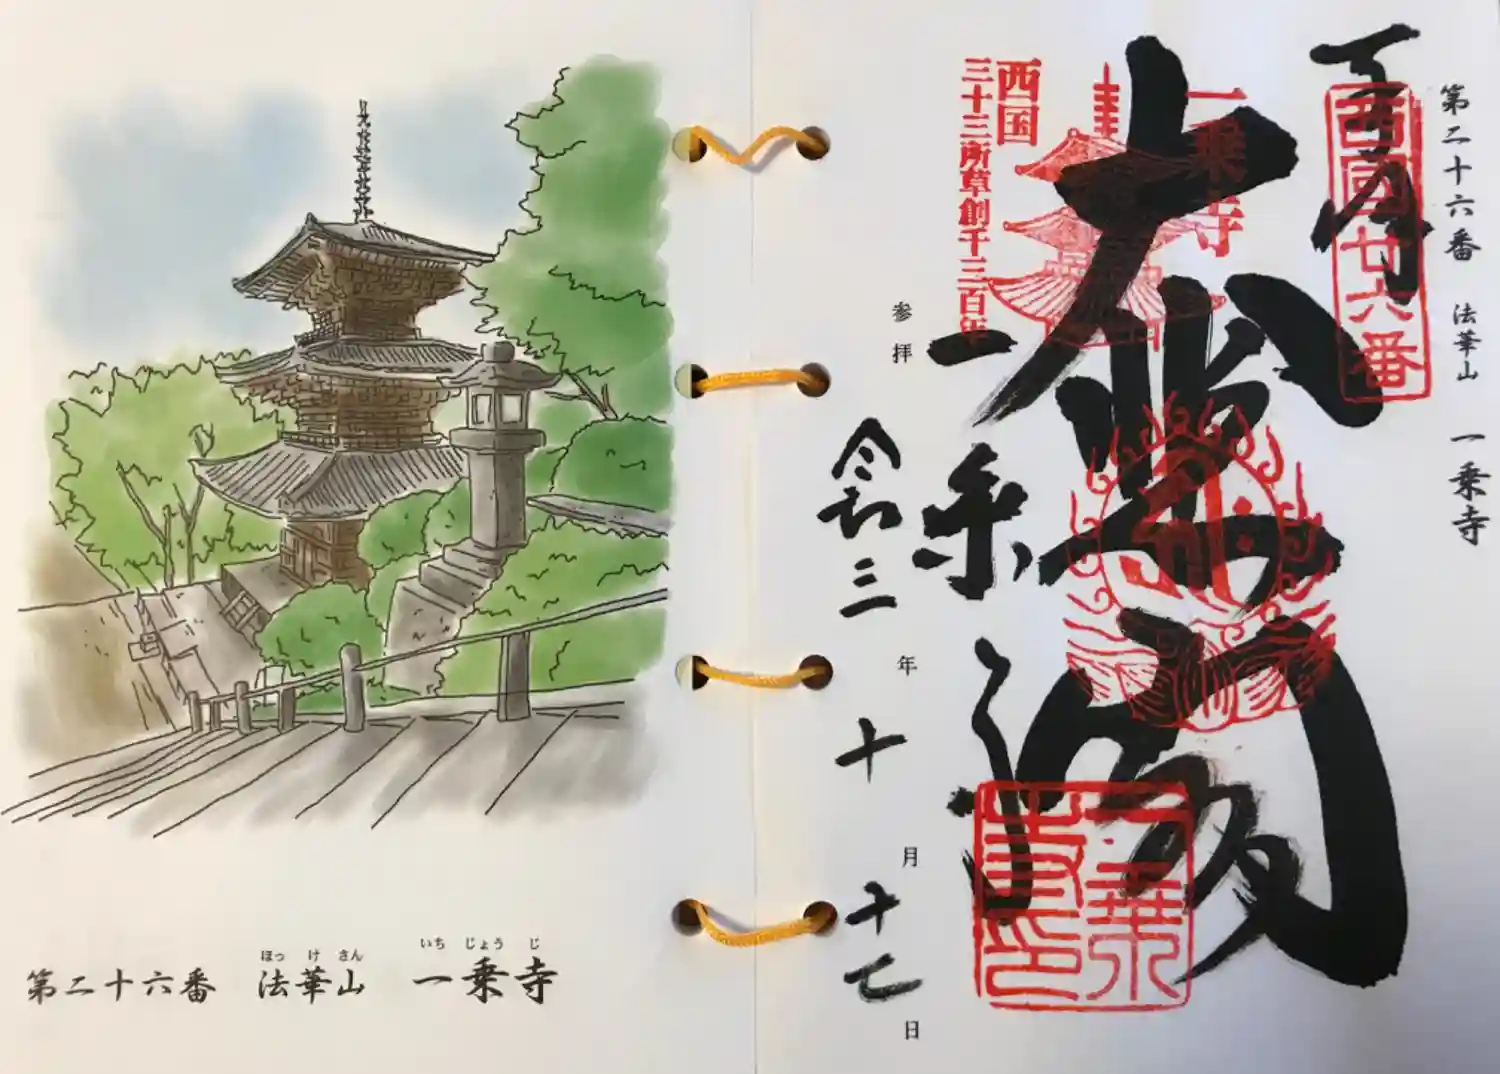 第二十六番 法華山 一乗寺
奉拝
西國廿六番
大悲閣
一乗寺
西国
三十三所草創千三百年
一乗寺
参拝 令和三年 十月 十七日
ほっ け さん いち じょう じ
第二十六番 法華山 一乗寺